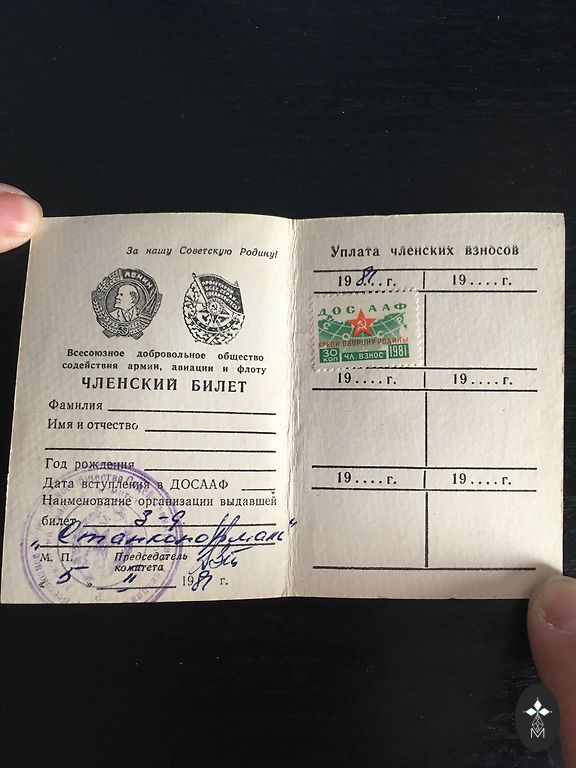 За нашу Советскую Родину!
ЛЕНИН
Всесоюзное добровольное общество
содействия армии, авиации и флоту
ЧЛЕНСКИЙ БИЛЕТ
Фамилия
Имя и отчество
Год рождения
Дата вступления в ДОСААФ
Наименование организации выдавшей
билет З-д
М. П. Председатель
комитета
5 " " 1981 г.
Уплата членских взносов
1981 г. 19....г.
ДОСААФ
КРЕПИ ОБОРОНУ РОДИНЫ
30 КОП ЧЛ. ВЗНОС 1981
19....г. 19....г.
19....г. 19....г.
М